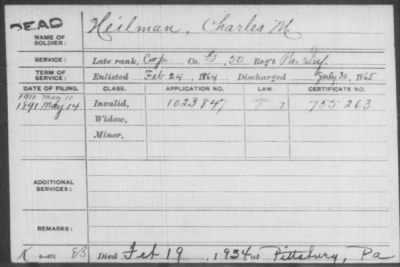 DEAD
NAME OF SOLDIER: Heilman, Charles M
SERVICE: Late rank, Cap Co. G, 50 Reg't Pa. Inf.
TERM OF SERVICE: Enlisted Feb 24, 1864 Discharged July 30, 1865
DATE OF FILING. CLASS. APPLICATION NO. LAW. CERTIFICATE NO.
1910 May 10
1891 May 14 Invalid, 1023847 755263
Widow,
Minor,
ADDITIONAL SERVICES:
REMARKS:
Died Feb 19, 1934 at Pittsburg, Pa